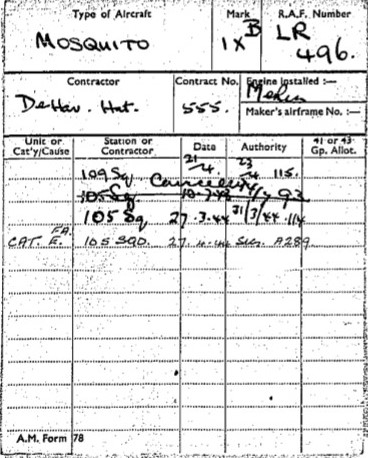 Type of Aircraft
Mark
R.A.F. Number
MOSQUITO
IX B
LR
496.
Contractor
Contract No.
Engine installed :—
DeHav. Hat.
555.
Merlin
Maker's airframe No. :—
Unit or Cat'y/Cause
Station or Contractor
Date
Authority
41 or 43 Gp. Allot.
109 Sq
21/4.
23/4
115.
Cancelled
105 Sq.
93
105 Sq
27.3.44
31/3/44
114
FA.
CAT. E.
105 SQD.
27
A289
A.M. Form 78